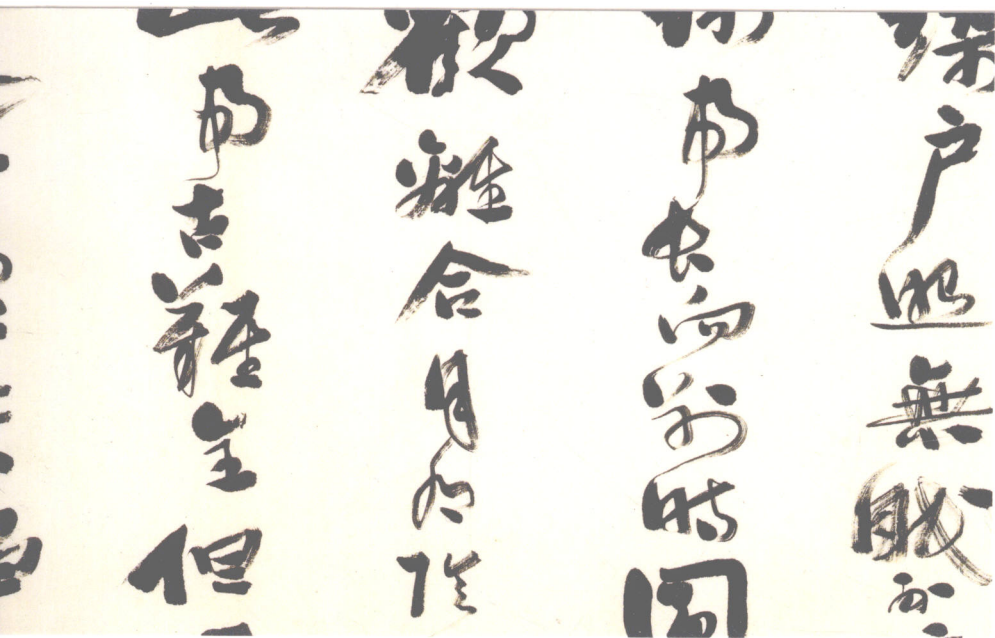 户照無眠不
事長向別時圓
歡離合月有陰
此事古難全但